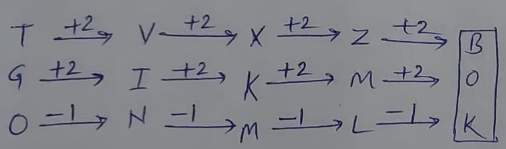 T +2 V +2 X +2 Z +2 B
G +2 I +2 K +2 M +2 O
O -1 N -1 M -1 L -1 K